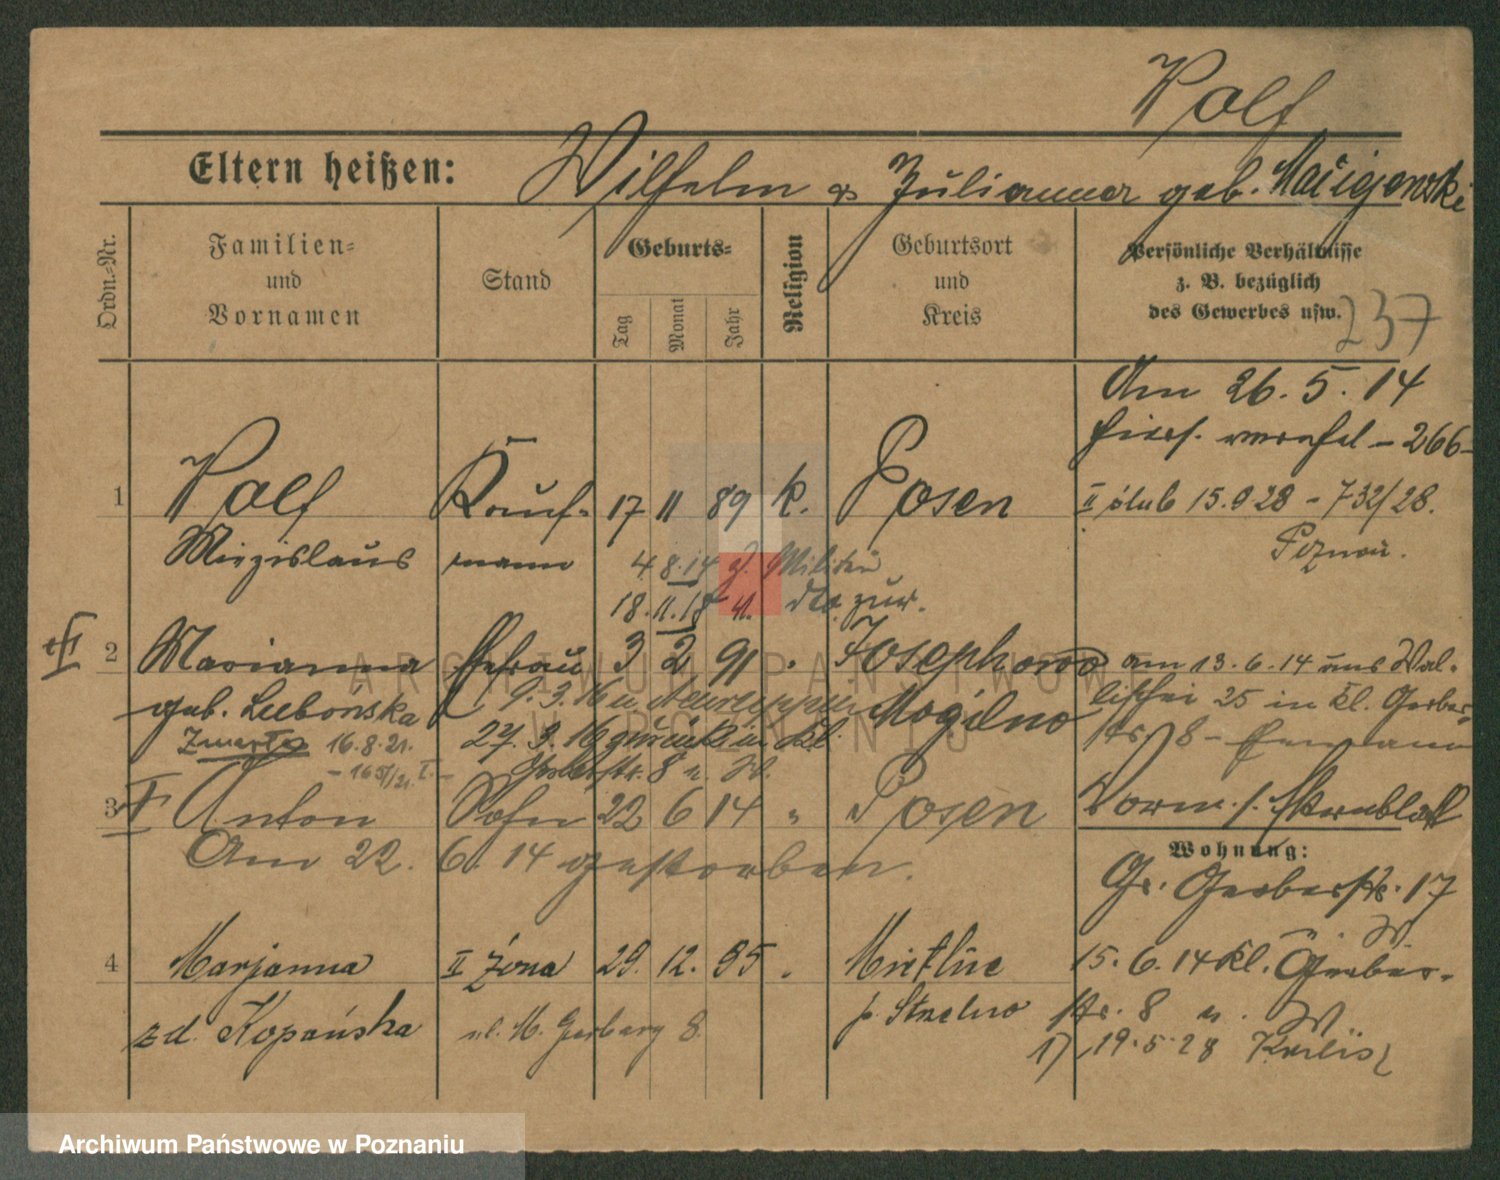 Wolf
Eltern heißen: Wilhelm & Julianna geb. Maciejewski
Ordn.-Nr.
Familien-
und
Vornamen
Stand
Geburts-
Tag
Monat
Jahr
Religion
Geburtsort
und
Kreis
Persönliche Verhältnisse
z. B. bezüglich
des Gewerbes usw.
237
Am 26.5.14
hier - 266-
1 Wolf Kauf- 17 11 89 k. Posen
II ślub 15.9 28 - 732/28.
Poznań.
Miezislaus mann
4 8.14 z. Militär
18.11.18 v. dto zur.
2 Marianna Ehefrau 3 2 91 " Josephowo
am 13.6.14 aus Wal-
lischei 25 in Kl. Gerber-
str 8 - Ehemann
geb. Lubońska
9.3.16 n.
Mogilno
Zmarła 16.8.21.
27.3.16 zurück in Kl.
Gerberstr. 8
3 Anton Sohn 22 6 14 " Posen
Am 22. 6. 14 gestorben.
Wohnung:
Gr. Gerberstr. 17
W.
4 Marjanna II żona 29. 12. 95 "
15.6.14 Kl. Gerber-
str. 8 W
zd. Kopańska ul. M. Garbary 8.
p. Strzelno
1) 19.5.28
ARCHIWUM PAŃSTWOWE
W POZNANIU
Archiwum Państwowe w Poznaniu